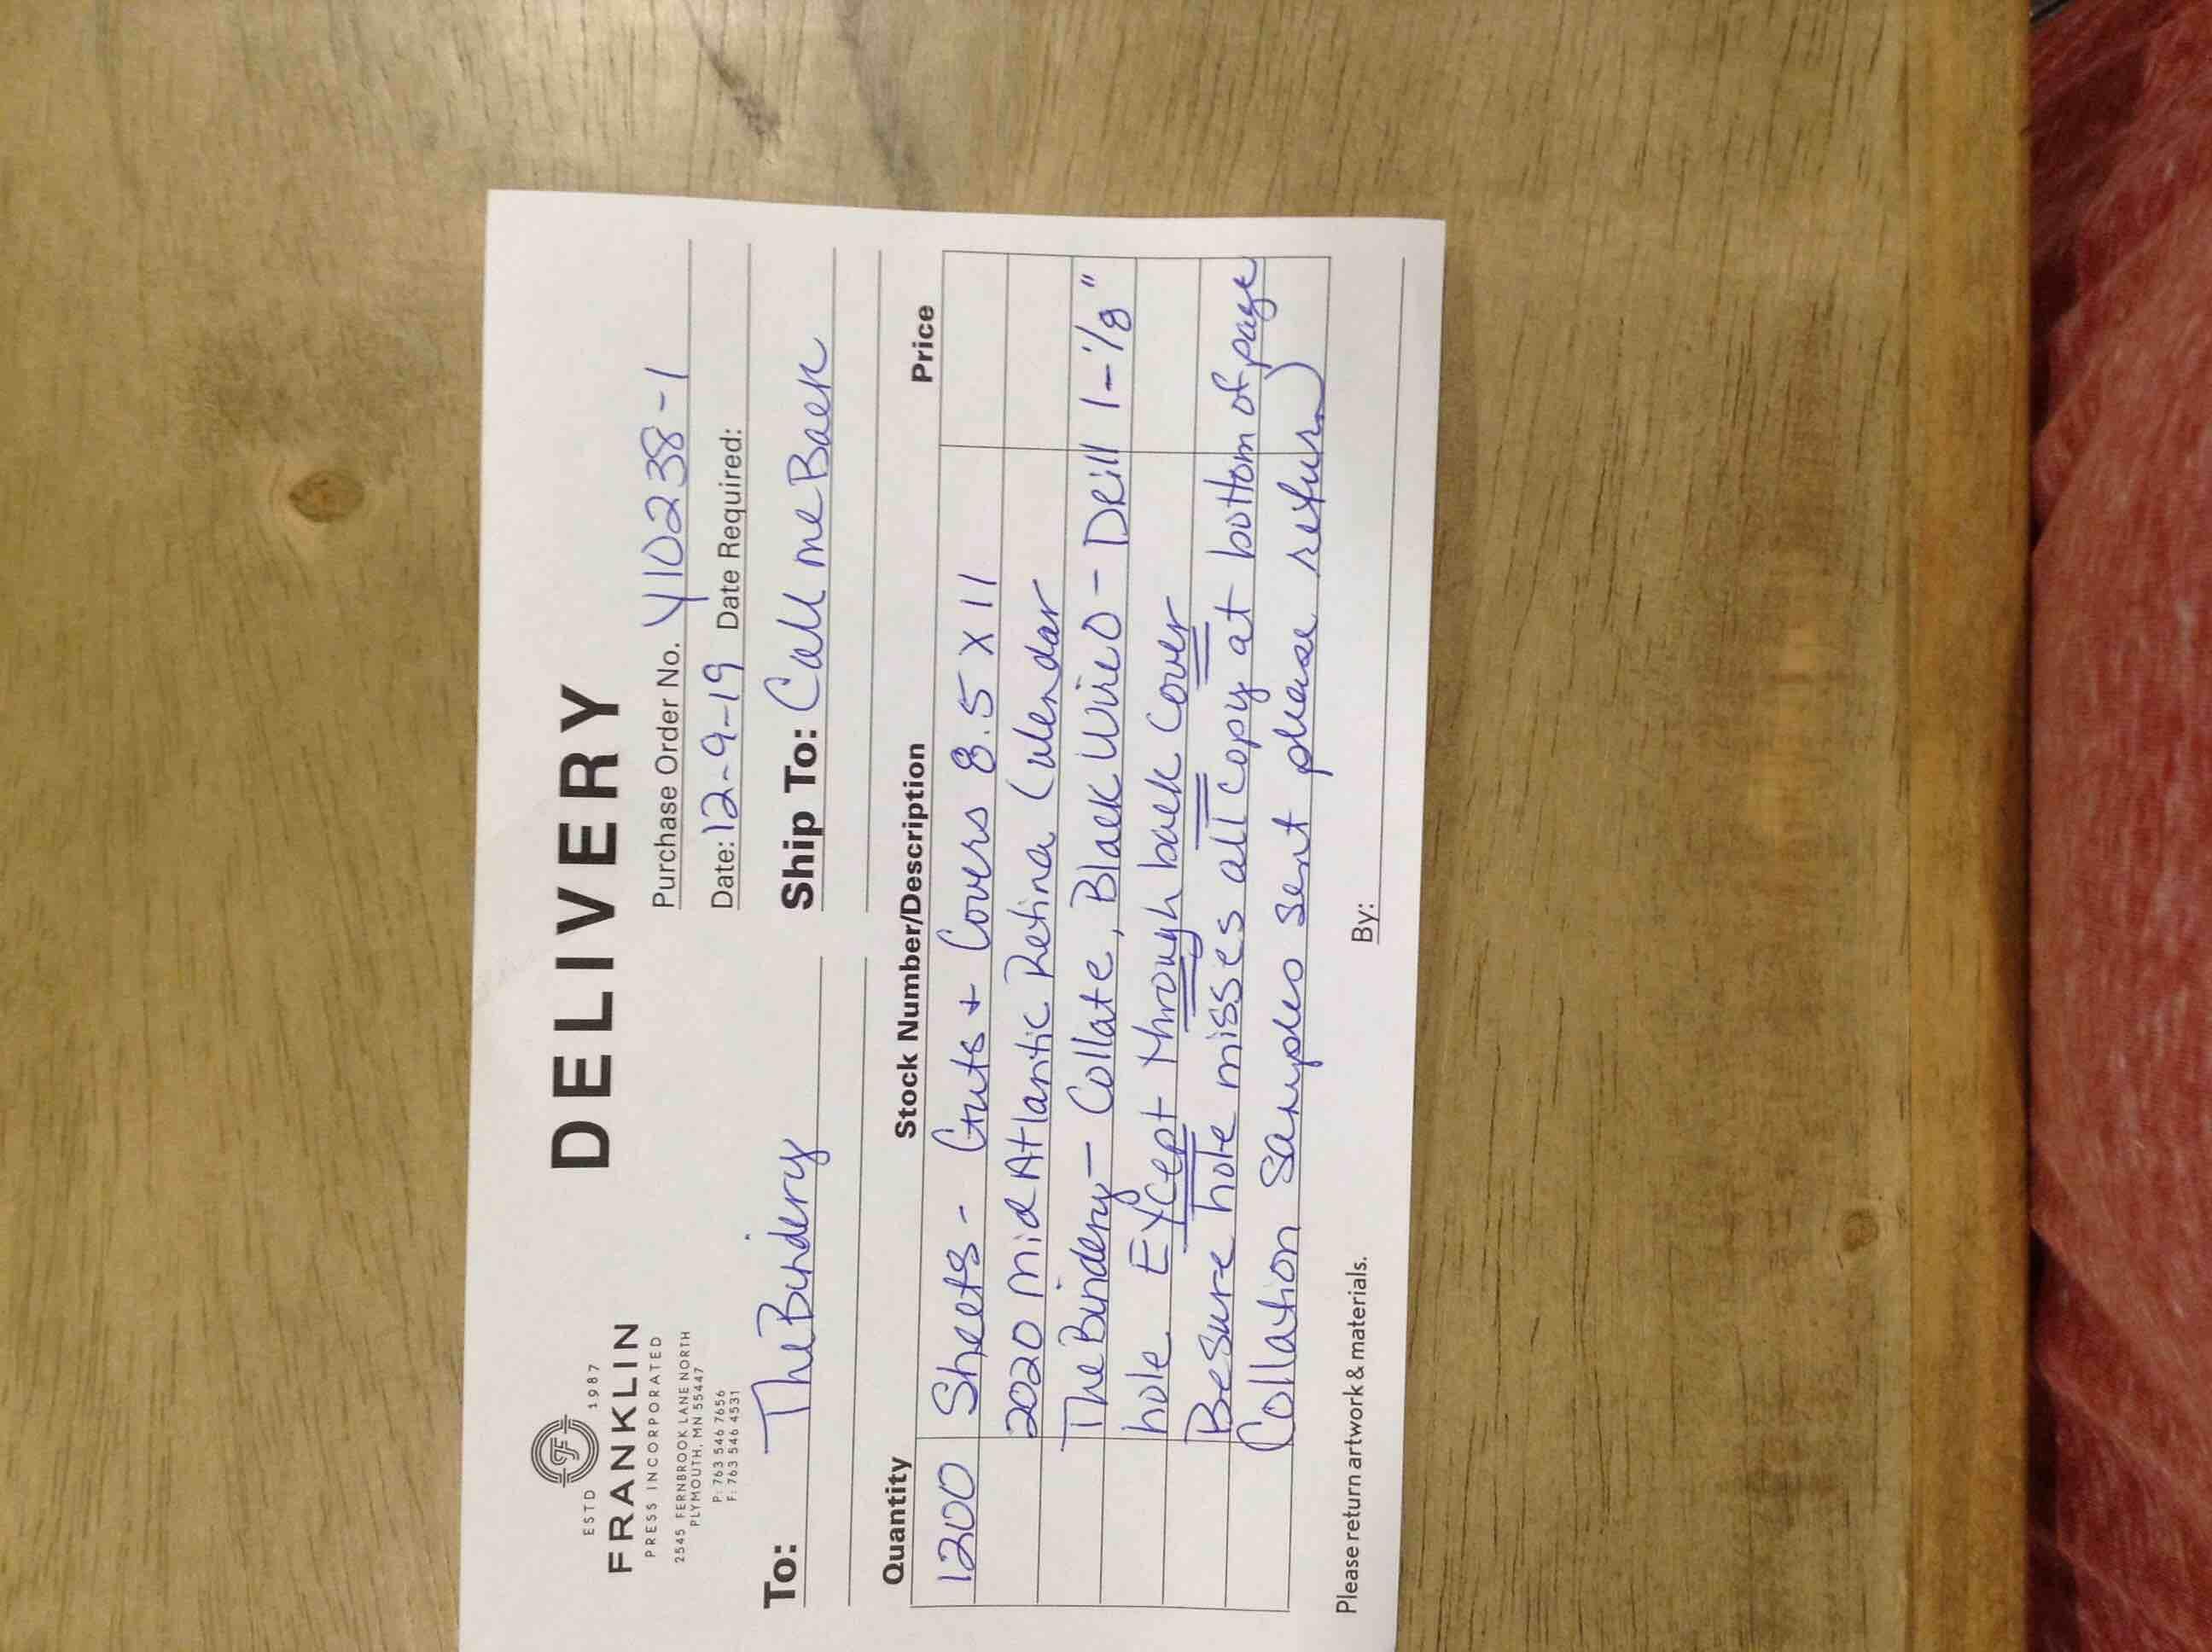 ESTD 1987
FRANKLIN
PRESS INCORPORATED
2545 FERNBROOK LANE NORTH
PLYMOUTH, MN 55447
P: 763 546 7656
F: 763 546 4531
DELIVERY
Purchase Order No. Y10238-1
Date: 12-9-19 Date Required:
To: The Bindery
Ship To: Call me Back
Quantity Stock Number/Description Price
1200 Sheets - Guts + Covers 8.5 x 11
2020 Mid Atlantic Retina Calendar
The Bindery - Collate, Black Wire O - Drill 1-1/8"
hole EXCept through back Cover
Be Sure hole misses all copy at bottom of page
Collation Samples sent please return
Please return artwork & materials.
By: